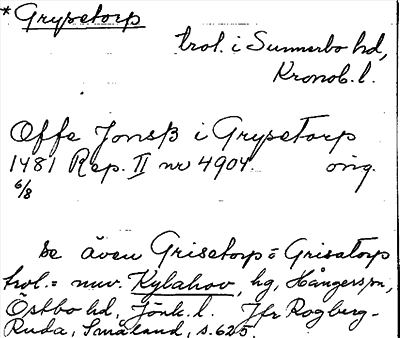 * Grypetorp
trol. i Sunnerbo hd,
Kronob. l.
Offe Jonsß i Grypetorp
1481 Rep. II nr 4904. orig.
6/8
Se även Grisetorp = Grisatorp
trol. = nuv. Kylahov, hg, Hångers sn,
Östbo hd, Jönk. l. Jfr Rogberg-
Ruda, Småland, s. 625.